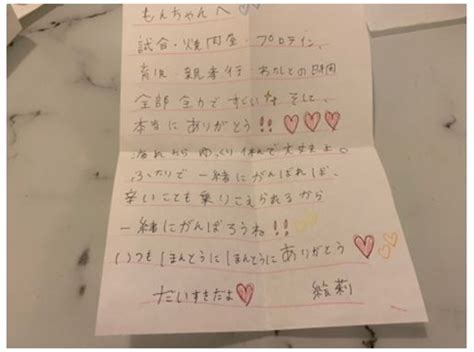 もんちゃんへ♡
試合・焼肉金・プロテイン、
育児・親孝行 あたしとの時間
全部全力ですごいなぁ そして、
本当にありがとう!! ♡♡♡
これからゆっくり休んで大丈夫よ。
ふたりで一緒にがんばれば、
辛いことも乗りこえられるから
一緒にがんばろうね!!♡♡
いつもほんとうにほんとうにありがとう♡
だいすきだよ♡ 絵莉